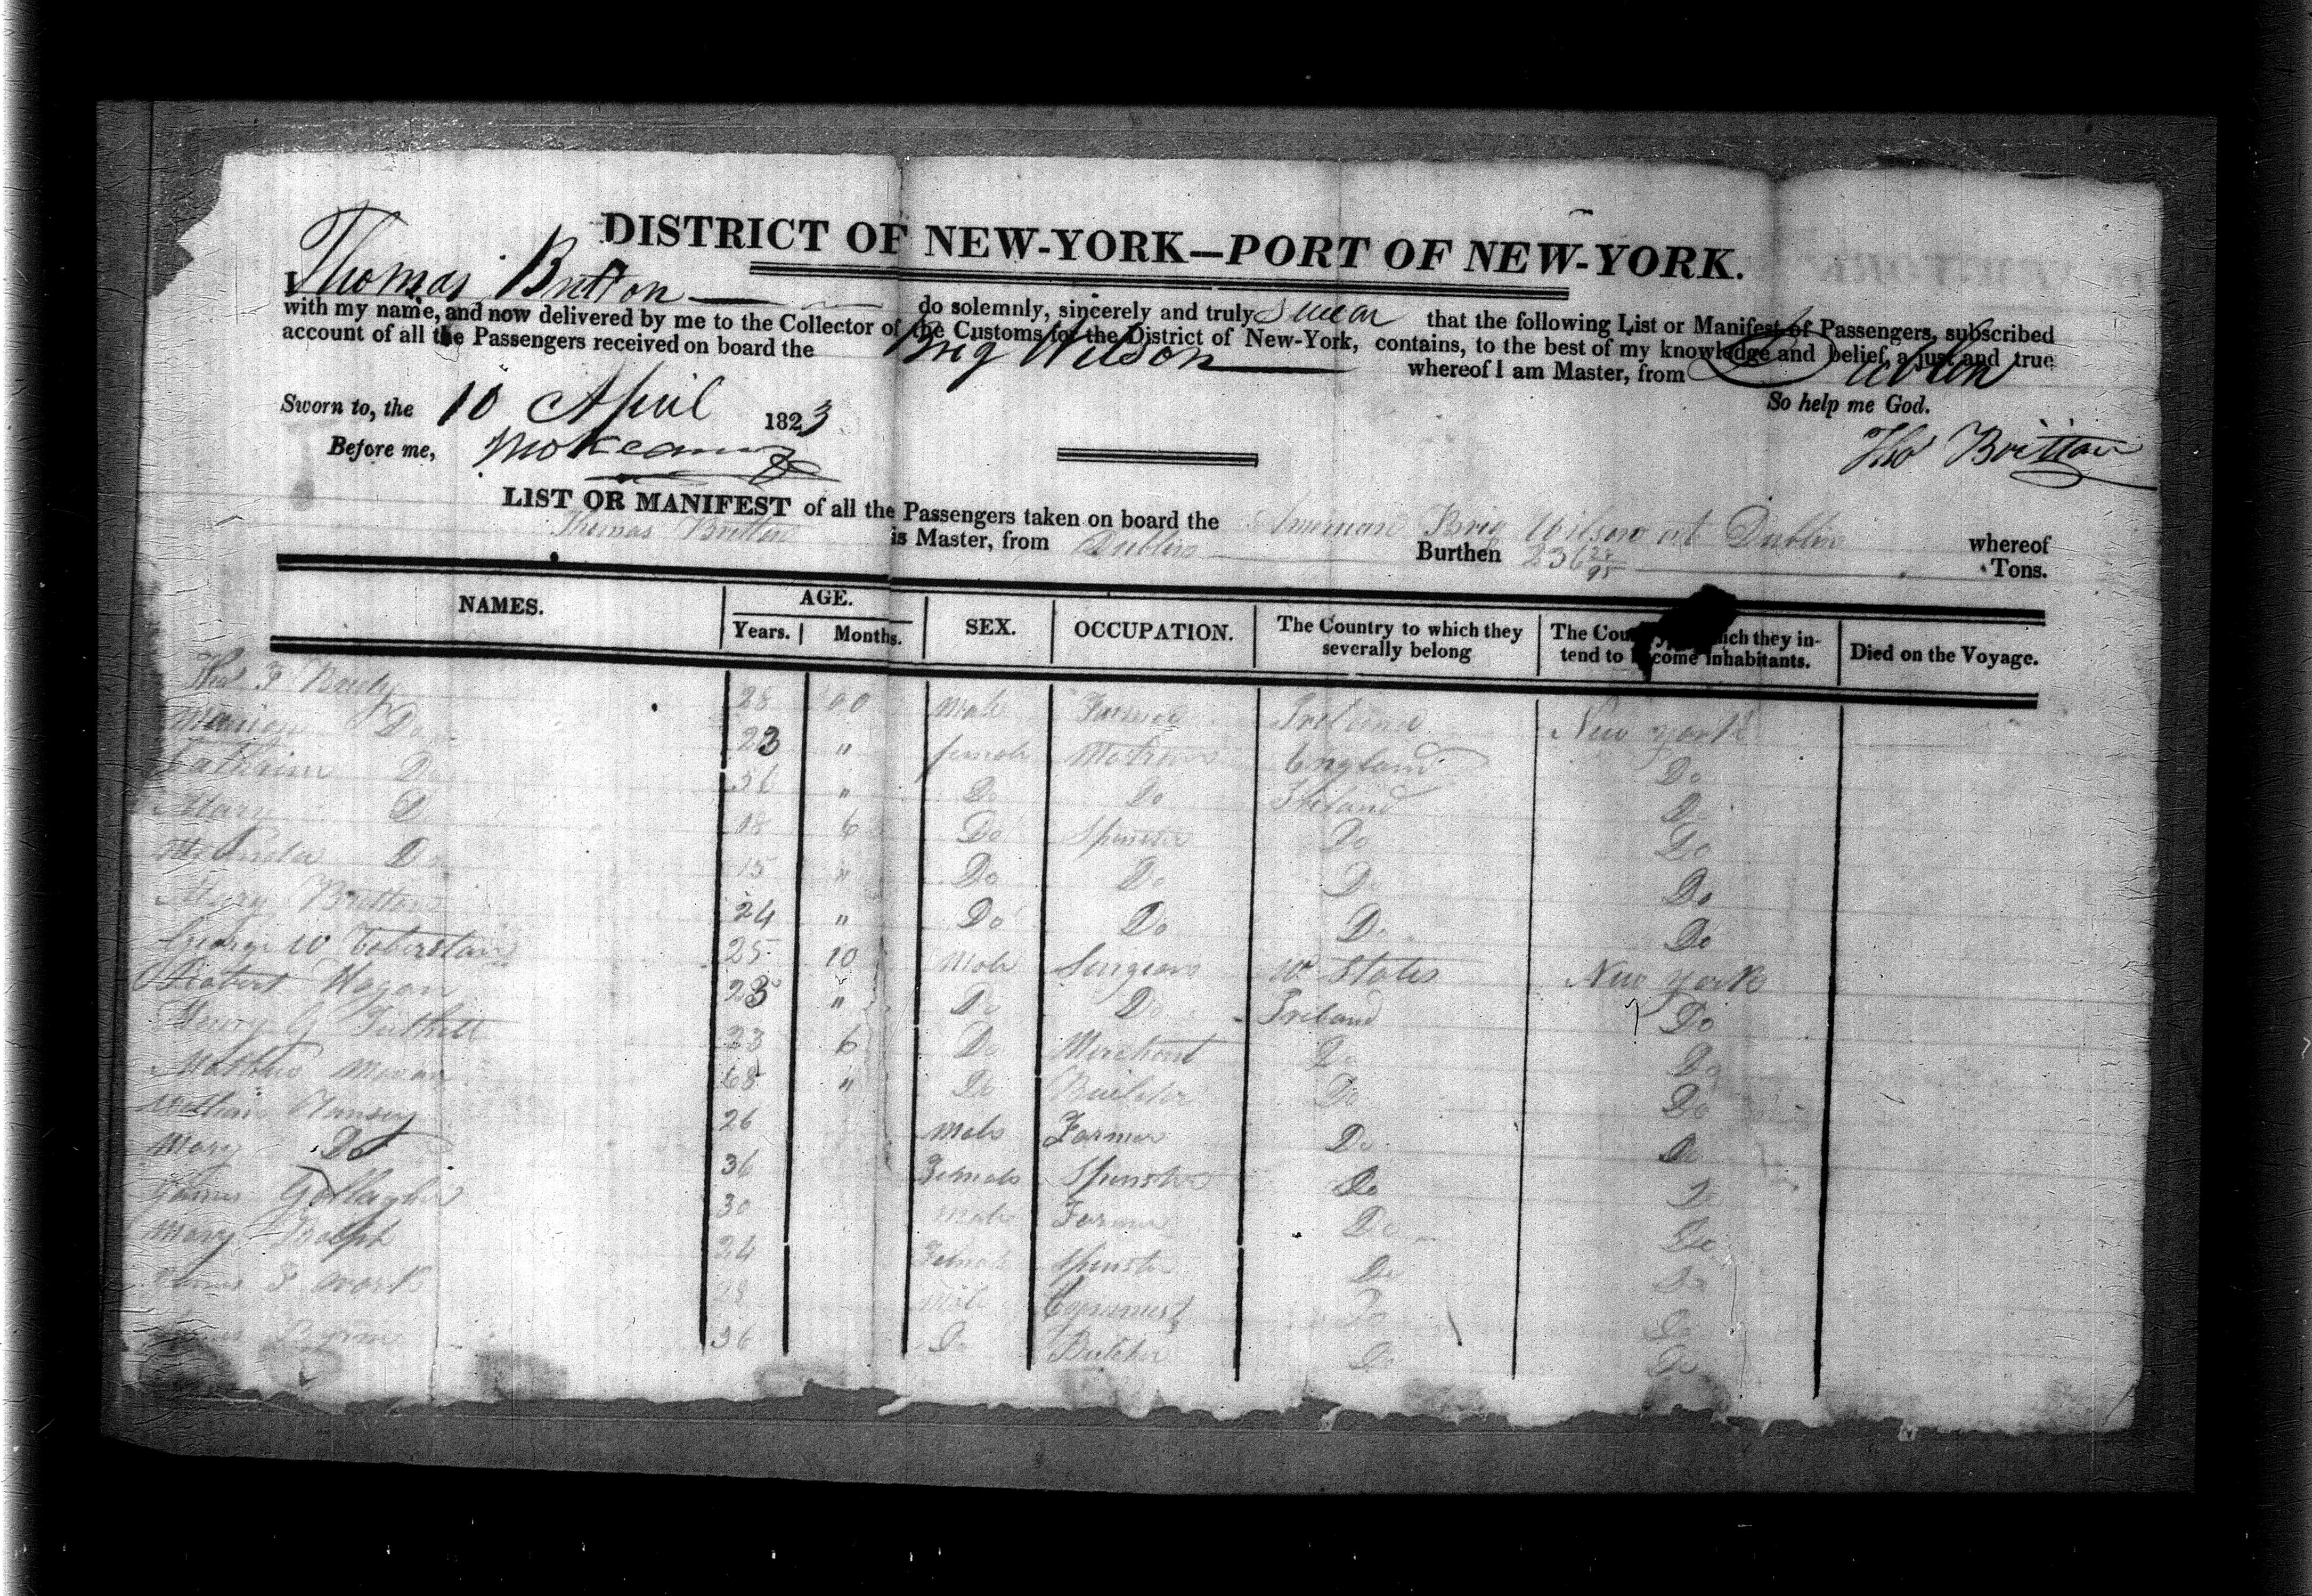 DISTRICT OF NEW-YORK—PORT OF NEW-YORK.
Thomas Britton do solemnly, sincerely and truly Swear that the following List or Manifest of Passengers, subscribed
with my name, and now delivered by me to the Collector of the Customs for the District of New-York, contains, to the best of my knowledge and belief, a just and true
account of all the Passengers received on board the Brig Wilson whereof I am Master, from Dublin
So help me God.
Sworn to, the 10 April 1823
Tho Britton
Before me,
LIST OR MANIFEST of all the Passengers taken on board the American Brig Wilson at Dublin whereof
Thomas Britton is Master, from Dublin Burthen 236 28/95 Tons.
NAMES. AGE. Years. Months. SEX. OCCUPATION. The Country to which they severally belong The Country which they intend to become inhabitants. Died on the Voyage.
Tho F Brady 28 00 Male Farmer Ireland New York
Do 23 " female Matron England Do
Catherine Do 56 " Do Do Ireland Do
Mary Do 18 6 Do Spinster Do Do
Do 15 " Do Do Do Do
Mary Britton 24 " Do Do Do Do
George W 25 10 Male Surgeon U States New York
Robert Hogan 23 " Do Do Ireland Do
Henry G Tuthill 23 6 Do Merchant Do Do
Mathew 68 " Do Builder Do Do
William 26 Male Farmer Do Do
Mary Do 36 Female Spinster Do Do
James Gallagher 30 Male Farmer Do Do
Mary 24 Female Spinster Do Do
James F Work 28 Male Do Do
Byrne 36 Do Butcher Do Do